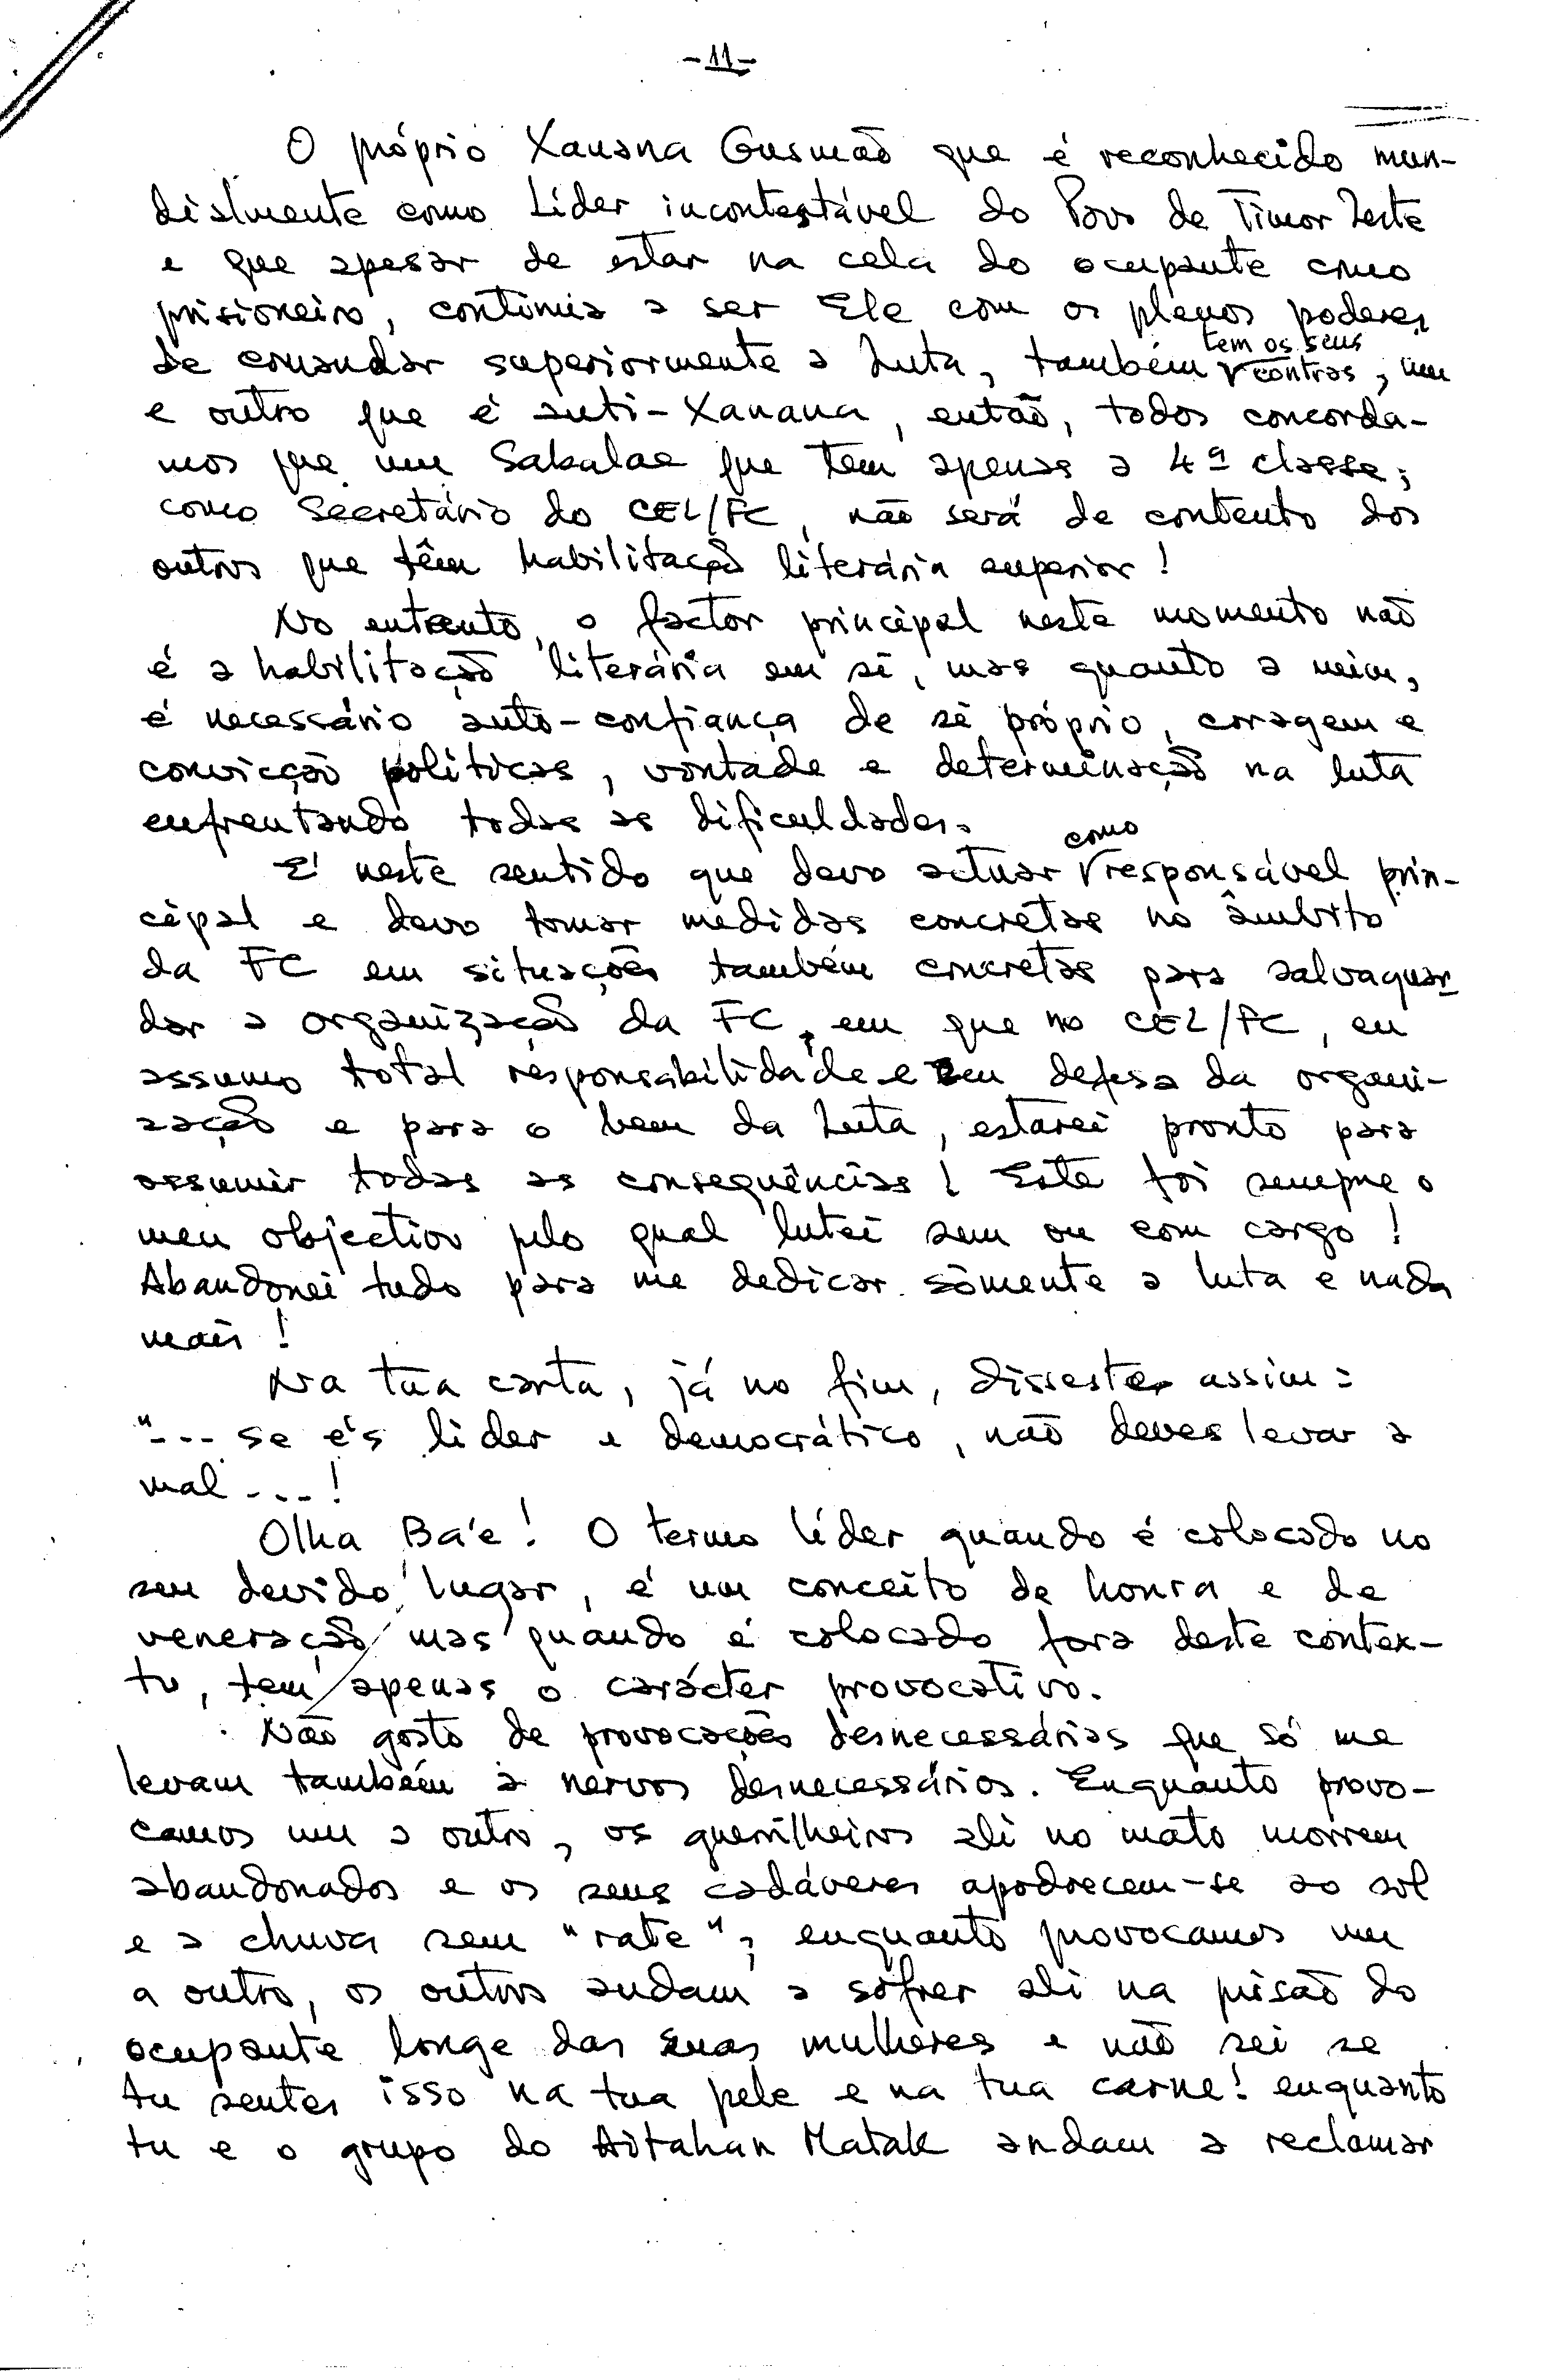 -11-
O próprio Xanana Gusmão que é reconhecido mun-
dialmente como Líder incontestável do Povo de Timor Leste
e que apesar de estar na cela do ocupante como
prisioneiro, continua a ser Ele com os plenos poderes
de comandar superiormente a Luta, também tem os seus contras, um
e outro que é anti-Xanana, então, todos concorda-
mos que um Sabalae que tem apenas a 4ª classe;
como Secretário do CEL/FC, não será de contento dos
outros que têm habilitação literária superior!
No entanto, o factor principal neste momento não
é a habilitação literária em si, mas quanto a mim,
é necessário auto-confiança de si próprio, coragem e
convicção políticas, vontade e determinação na luta
enfrentando todas as dificuldades.
É neste sentido que devo actuar como responsável prin-
cipal e devo tomar medidas concretas no âmbito
da FC em situações também concretas para salvaguar-
dar a organização da FC, em que no CEL/FC, eu
assumo total responsabilidade e em defesa da organi-
zação e para o bem da Luta, estarei pronto para
assumir todas as consequências! Este foi sempre o
meu objectivo pelo qual lutei sem ou com cargo!
Abandonei tudo para me dedicar sòmente a luta e nada
mais!
Na tua carta, já no fim, disseste assim:
"... se és lider e democrático, não deves levar a
mal ...!
Olha Ba'e! O termo líder quando é colocado no
seu devido lugar, é um conceito de honra e de
veneração, mas quando é colocado fora deste contex-
to, tem apenas o carácter provocativo.
Não gosto de provocações desnecessárias que só me
levam também à nervos desnecessários. Enquanto provo-
camos um a outro, os guerrilheiros ali no mato morrem
abandonados e os seus cadáveres apodrecem-se ao sol
e a chuva sem "rate"; enquanto provocamos um
a outro, os outros andam a sofrer ali na prisão do
ocupante longe das suas mulheres e não sei se
tu sentes isso na tua pele e na tua carne! enquanto
tu e o grupo do Aitahan Matak andam a reclamar